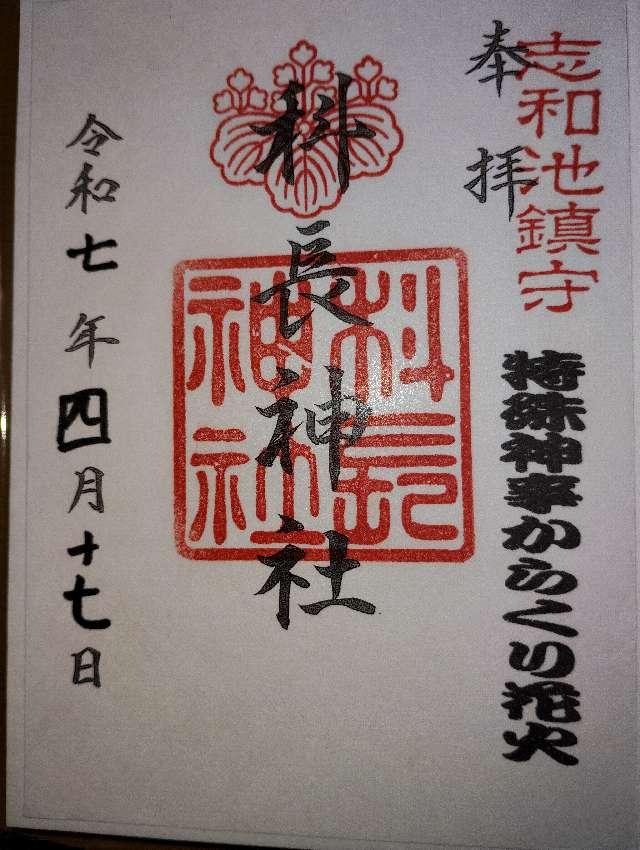 志和池鎮守
奉拝
特殊神事からくり花火
科長神社
科長神社
令和七年四月十七日